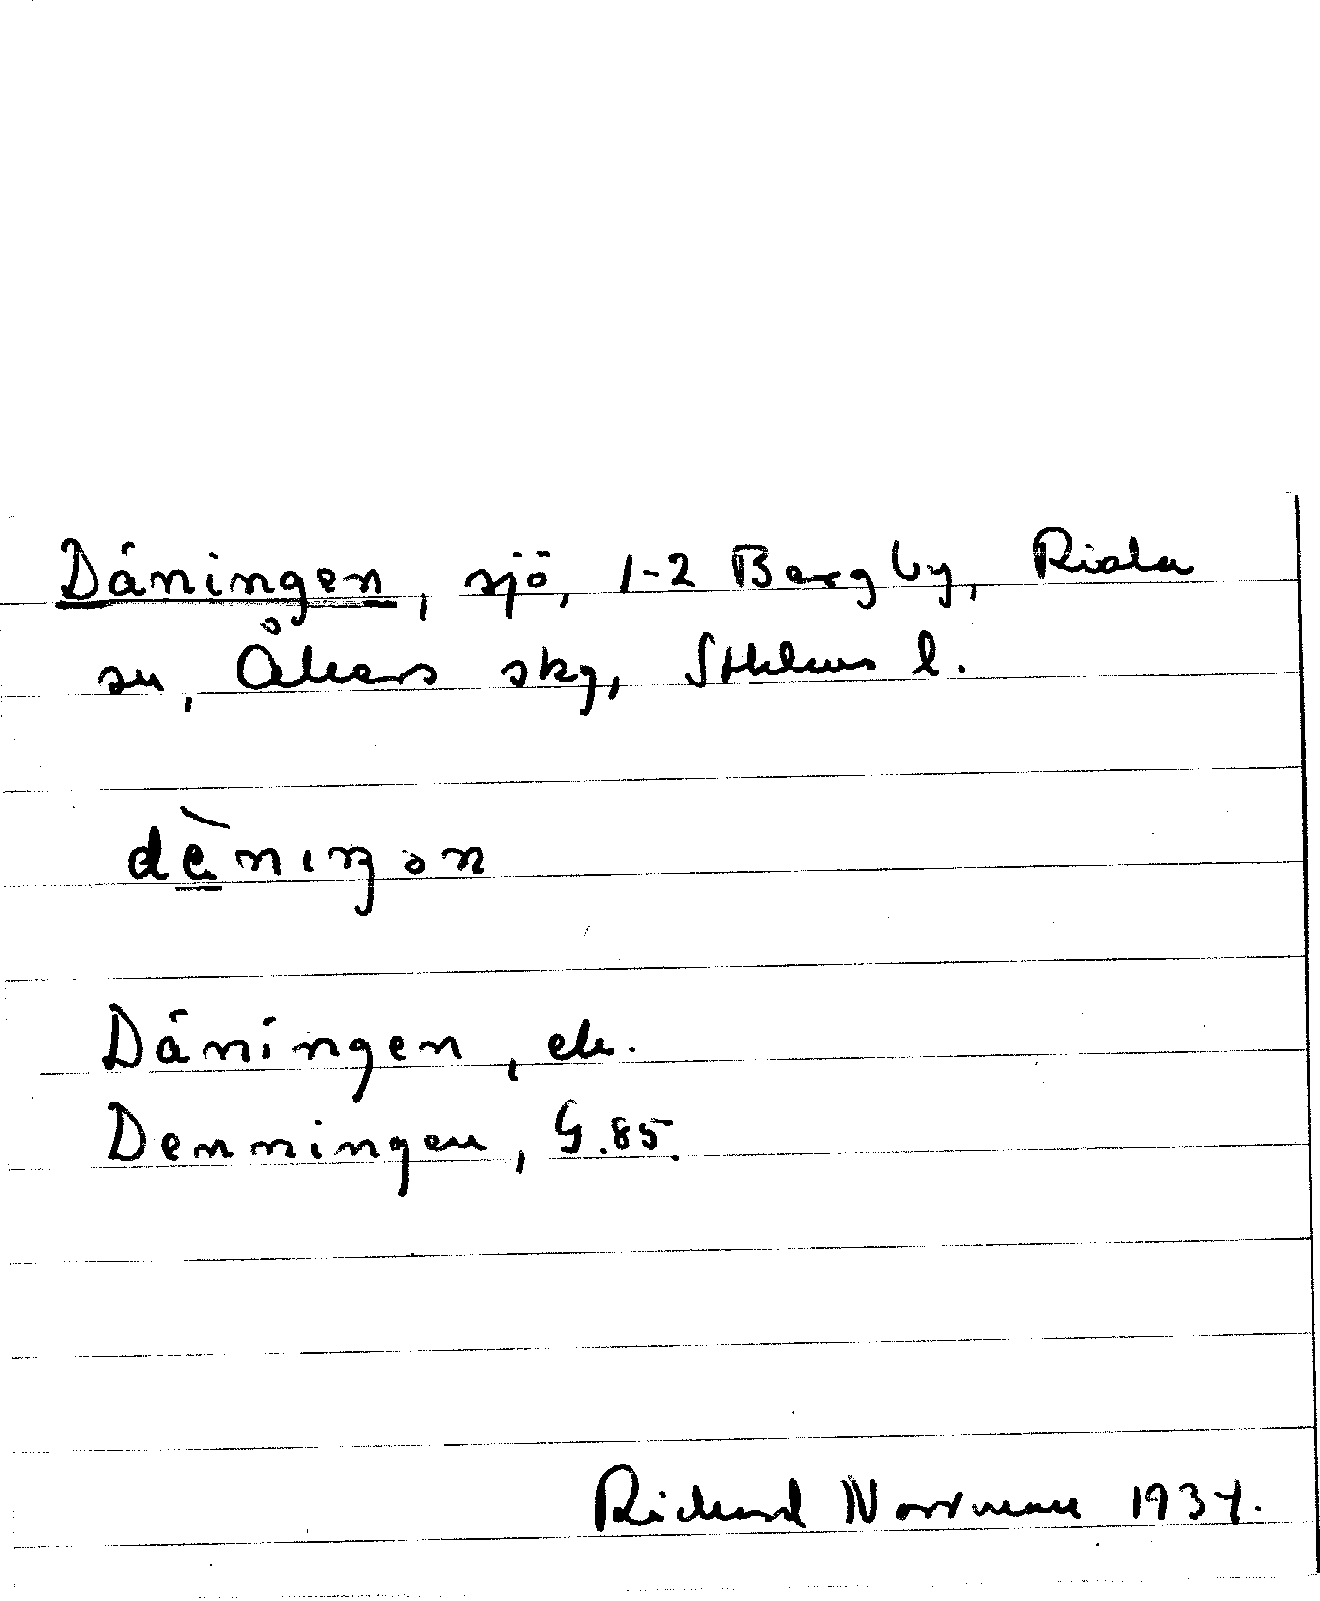 Däningen, sjö, 1-2 Bergby, Riala
sn, Åkers skg, Sthlms l.
dèniŋən
Däningen, ek.
Denningen, G.85.
Richard Norrman 1934.